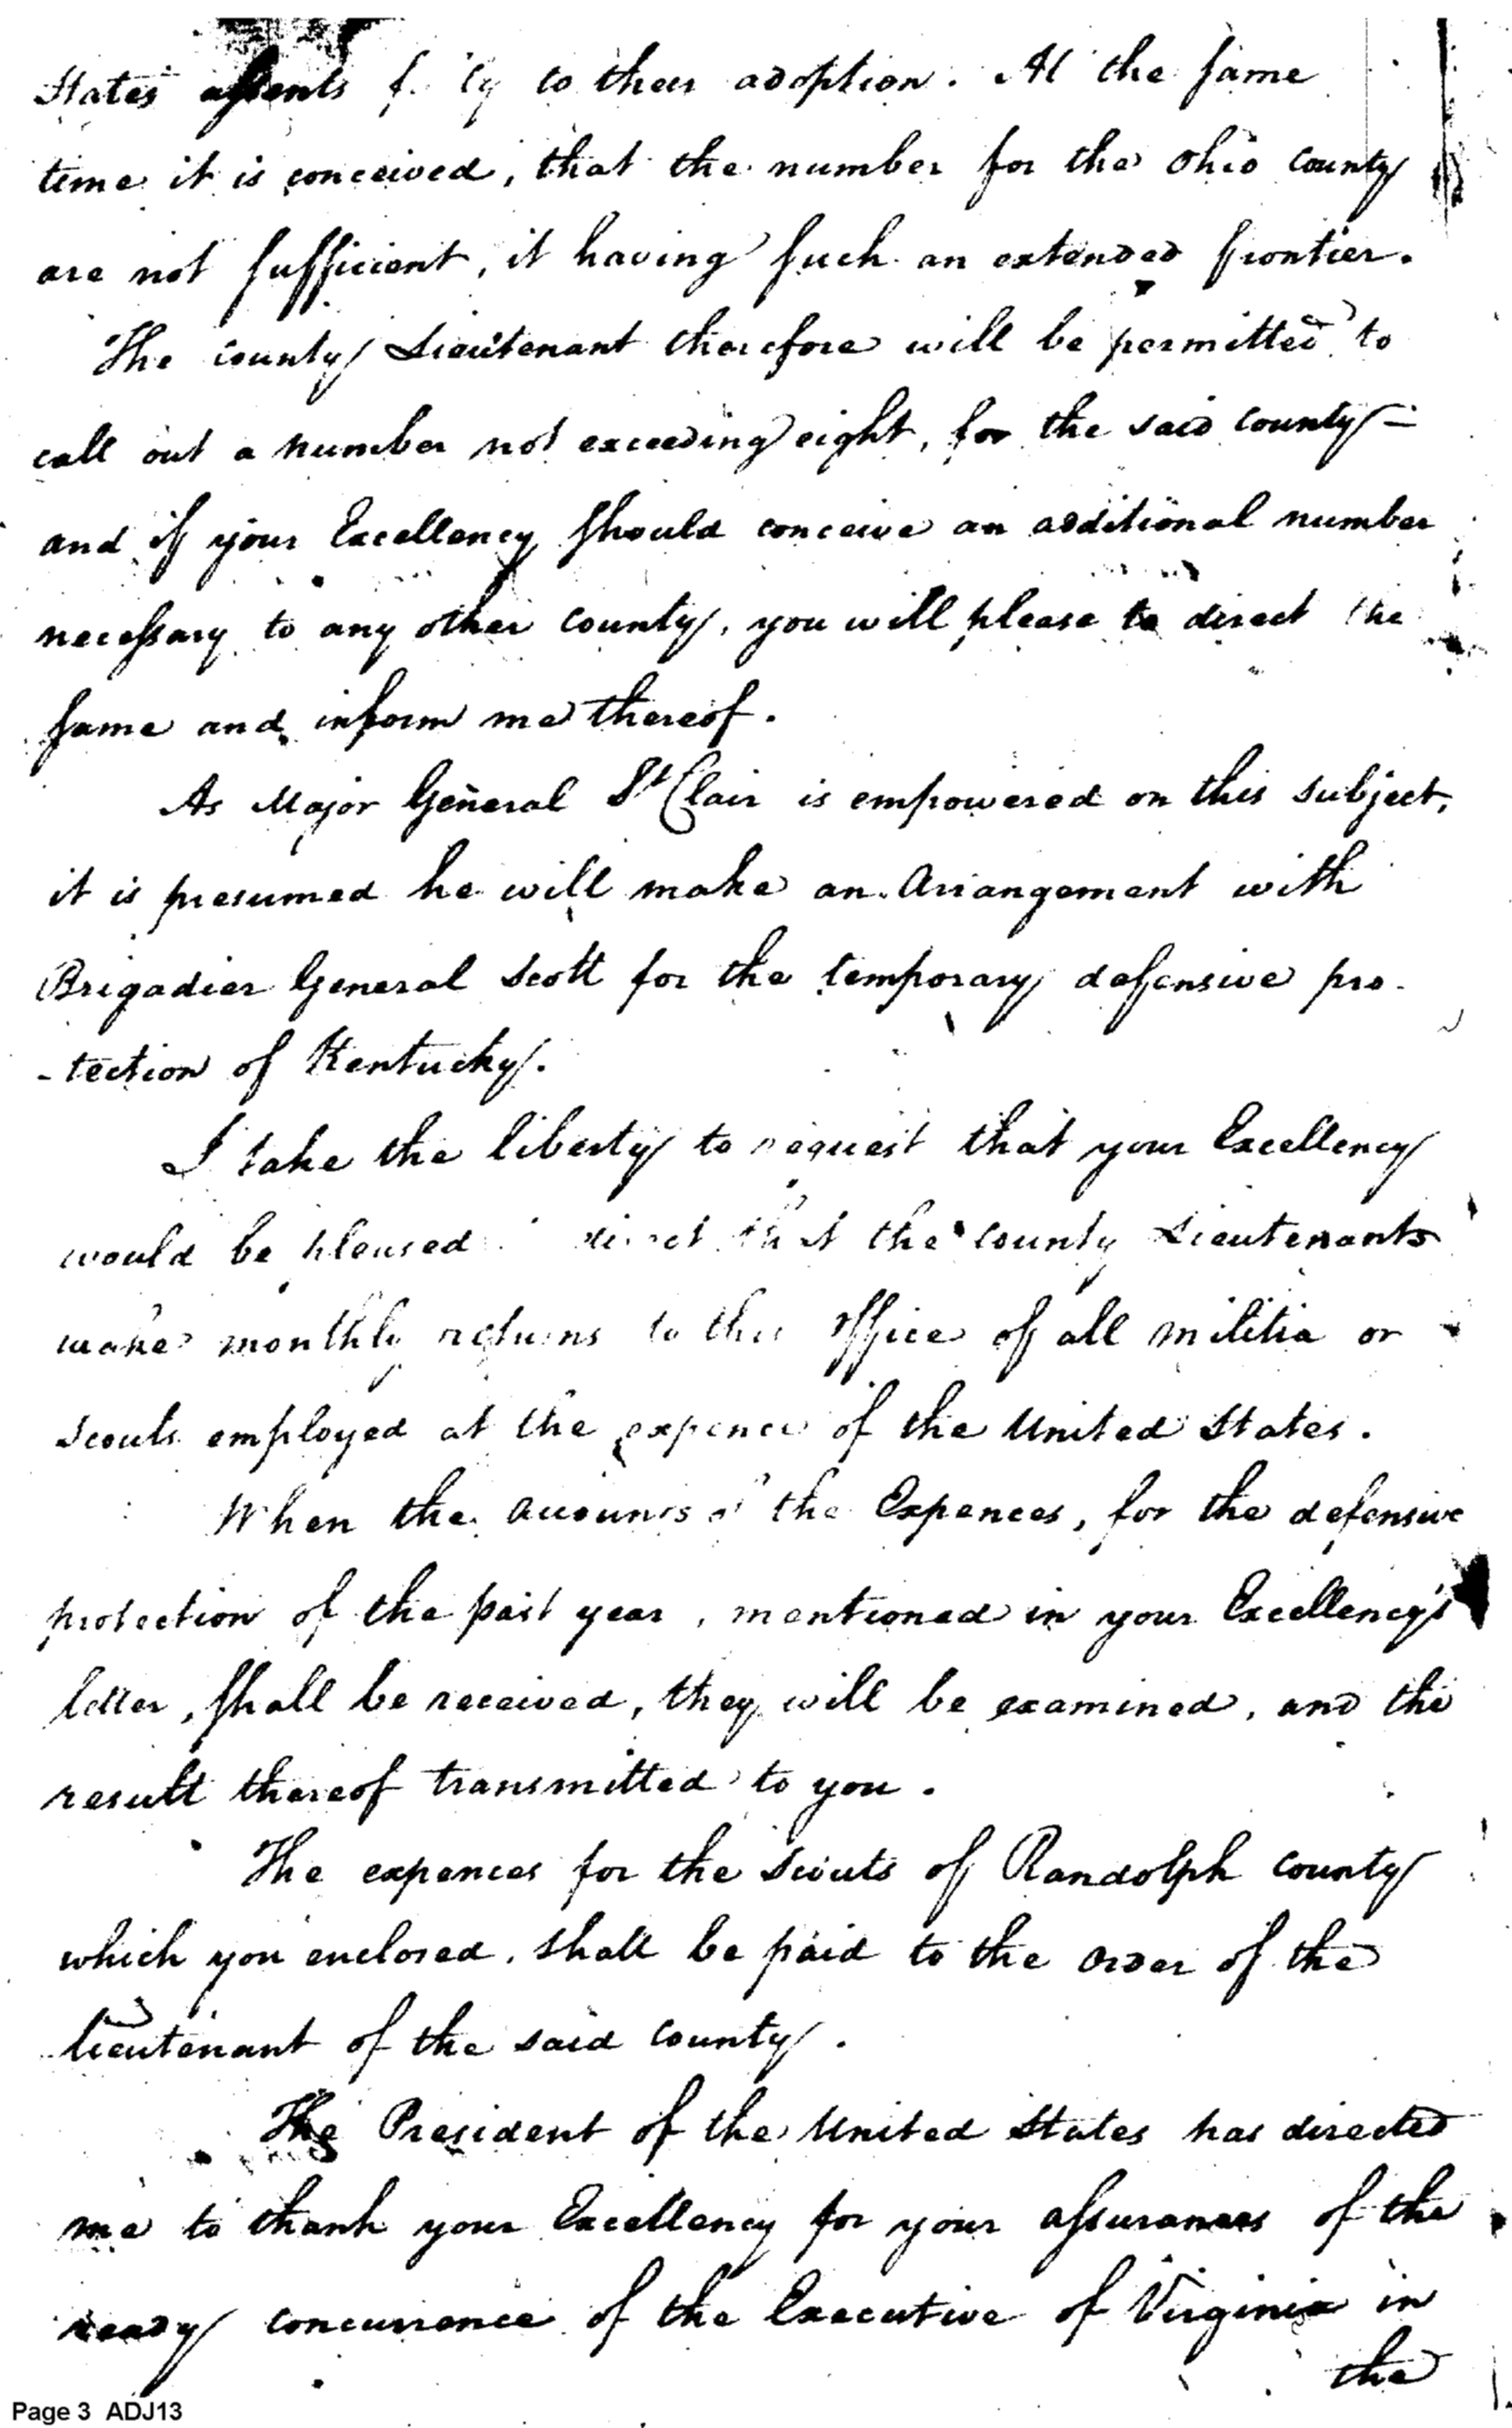 States assents to their adoption. At the same
time it is conceived, that the number for the Ohio County
are not sufficient, it having such an extended frontier.
The County Lieutenant therefore will be permitted to
call out a number not exceeding eight, for the said County –
and if your Excellency should conceive an additional number
necessary to any other County, you will please to direct the
same and inform me thereof.
As Major General St Clair is empowered on this subject,
it is presumed he will make an Arrangement with
Brigadier General Scott for the temporary defensive pro-
-tection of Kentucky.
I take the liberty to request that your Excellency
would be pleased direct that the County Lieutenants
make monthly returns to this Office of all militia or
scouts employed at the expence of the United States.
When the accounts of the Expences, for the defensive
protection of the past year, mentioned in your Excellency's
letter, shall be received, they will be examined, and the
result thereof transmitted to you.
The expences for the Scouts of Randolph County
which you enclosed, shall be paid to the Order of the
lieutenant of the said County.
The President of the United States has directed
me to thank your Excellency for your assurances of the
ready concurrence of the Executive of Virginia in
the
Page 3 ADJ13